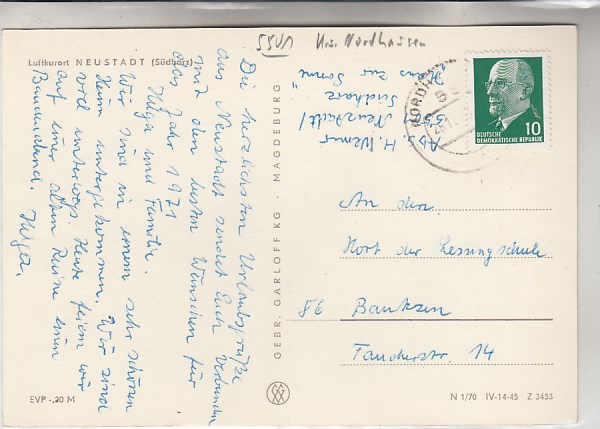 5501 Krs. Nordhausen
Luftkurort NEUSTADT (Südharz)
Die herzlichsten Urlaubsgrüße
aus Neustadt sendet Euch verbunden
mit den besten Wünschen für
das Jahr 1971
Helga und Familie.
Wir sind in einem sehr schönen
Heim untergekommen. Wir sind
viel unterwegs. Heute feiern wir
auf einer alten Ruine einen
Baudenabend. Helga.
Abs. H. Werner
5501 Neustadt/
Südharz
Haus zur Sonne"
GEBR. GARLOFF KG · MAGDEBURG
NORDH
10
DEUTSCHE
DEMOKRATISCHE REPUBLIK
An den
Hort der Lessingschule
86 Bautzen
Taucherstr. 14
EVP -,20 M
N 1/70 IV-14-45 Z 3453